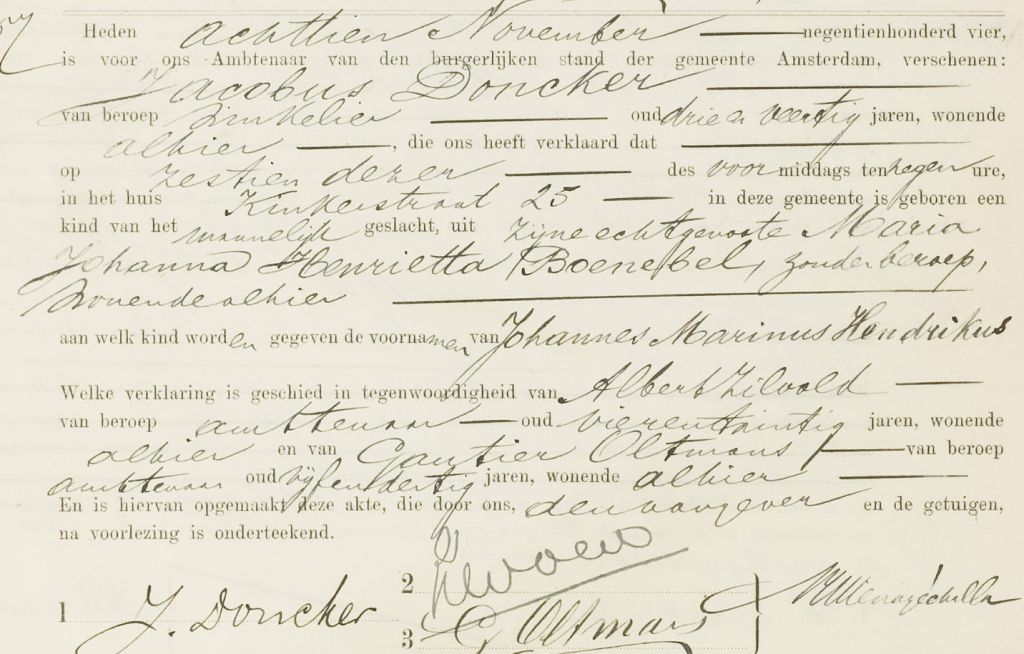 Heden achttien November negentienhonderd vier,
is voor ons Ambtenaar van den burgerlijken stand der gemeente Amsterdam, verschenen:
Jacobus Doncker
van beroep Winkelier oud drie en veertig jaren, wonende
alhier, die ons heeft verklaard dat
op zestien dezer des voormiddags ten negen ure,
in het huis Kinkerstraat 25 in deze gemeente is geboren een
kind van het mannelijk geslacht, uit zijne echtgenoote Maria
Johanna Henrietta Boenebel, zonder beroep,
wonende alhier
aan welk kind worden gegeven de voornamen van Johannes Marinus Hendrikus
Welke verklaring is geschied in tegenwoordigheid van Albert Zilvold
van beroep ambtenaar oud vierentwintig jaren, wonende
alhier en van Gautier Oltmans van beroep
ambtenaar oud vijfendertig jaren, wonende alhier
En is hiervan opgemaakt deze akte, die door ons, den aangever en de getuigen,
na voorlezing is onderteekend.
1 J. Doncker
2
3 G. Oltmans